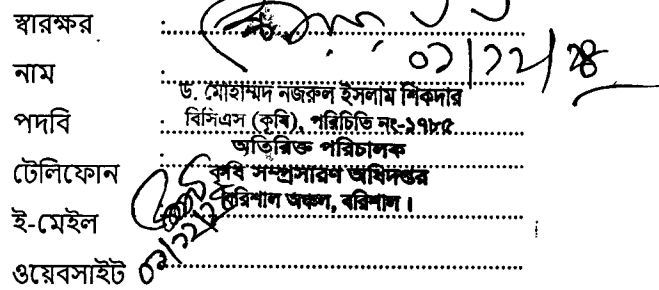 স্বারক্ষর :
০১/১২/২৪
নাম :
ড. মোহাম্মদ নজরুল ইসলাম শিকদার
পদবি : বিসিএস (কৃষি), পরিচিতি নং-১৭৮৫
অতিরিক্ত পরিচালক
টেলিফোন : কৃষি সম্প্রসারণ অধিদপ্তর
বরিশাল অঞ্চল, বরিশাল।
ই-মেইল :
ওয়েবসাইট :